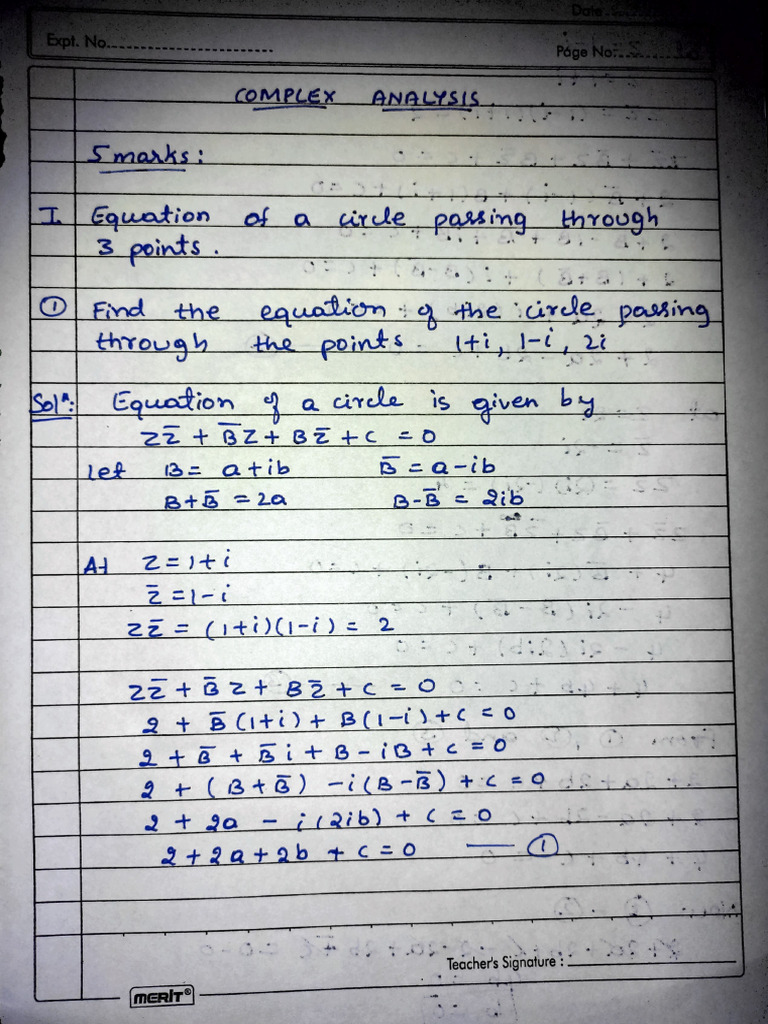 Date
Expt. No.
Page No:
COMPLEX ANALYSIS.
5 marks:
I. Equation of a circle passing through
3 points.
① Find the equation of the circle passing
through the points 1+i, 1-i, 2i
Solⁿ: Equation of a circle is given by
zz̄ + B̄z + Bz̄ + c = 0
let B = a+ib B̄ = a-ib
B+B̄ = 2a B-B̄ = 2ib
At z = 1+i
z̄ = 1-i
zz̄ = (1+i)(1-i) = 2
zz̄ + B̄z + Bz̄ + c = 0
2 + B̄(1+i) + B(1-i) + c = 0
2 + B̄ + B̄i + B - iB + c = 0
2 + (B+B̄) - i(B-B̄) + c = 0
2 + 2a - i(2ib) + c = 0
2 + 2a + 2b + c = 0 — ①
Teacher's Signature :
MERIT®